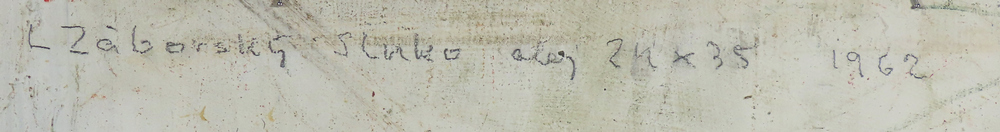 L Záborský Slnko olej 24x35 1962